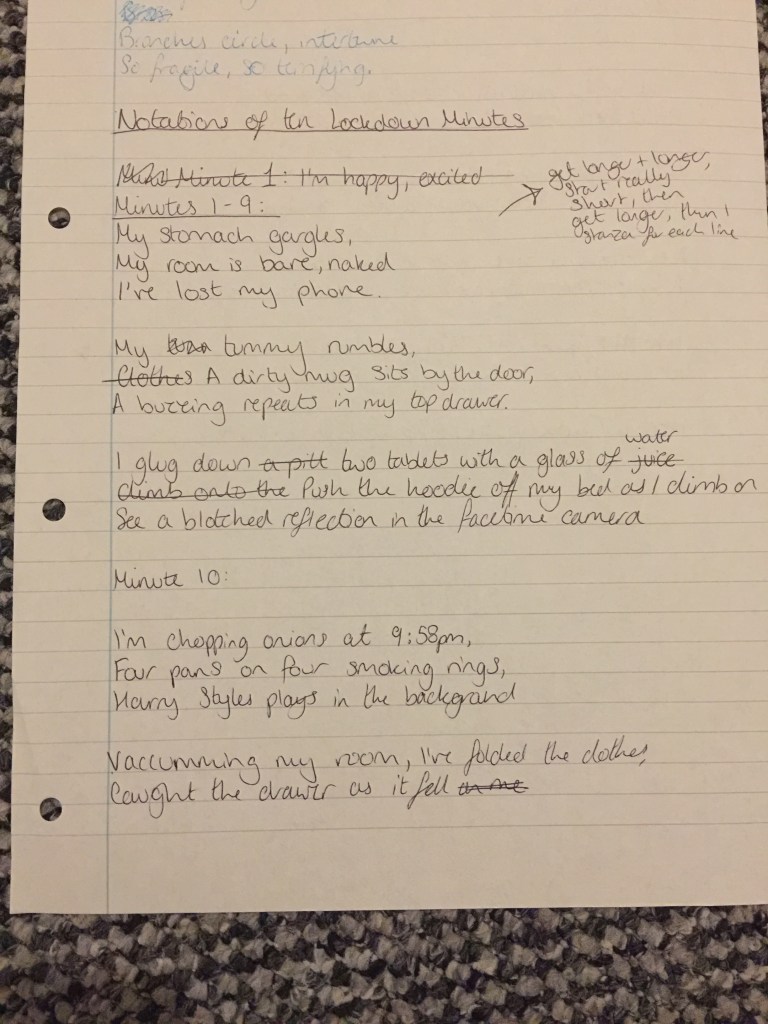 Branches circle, intertwine
So fragile, so terrifying.
Notations of ten Lockdown Minutes
Minute 1: I'm happy, excited
get longer + longer,
start really
short, then
get longer, then 1
stanza for each line
Minutes 1-9:
My stomach gargles,
My room is bare, naked
I've lost my phone.
My tummy rumbles,
Clothes A dirty mug sits by the door,
A buzzing repeats in my top drawer.
water
I glug down a pill two tablets with a glass of juice
climb onto the Push the hoodie off my bed as I climb on
See a blotched reflection in the facetime camera
Minute 10:
I'm chopping onions at 9:58pm,
Four pans on four smoking rings,
Harry Styles plays in the background
Vaccumming my room, I've folded the clothes,
Caught the drawer as it fell on me